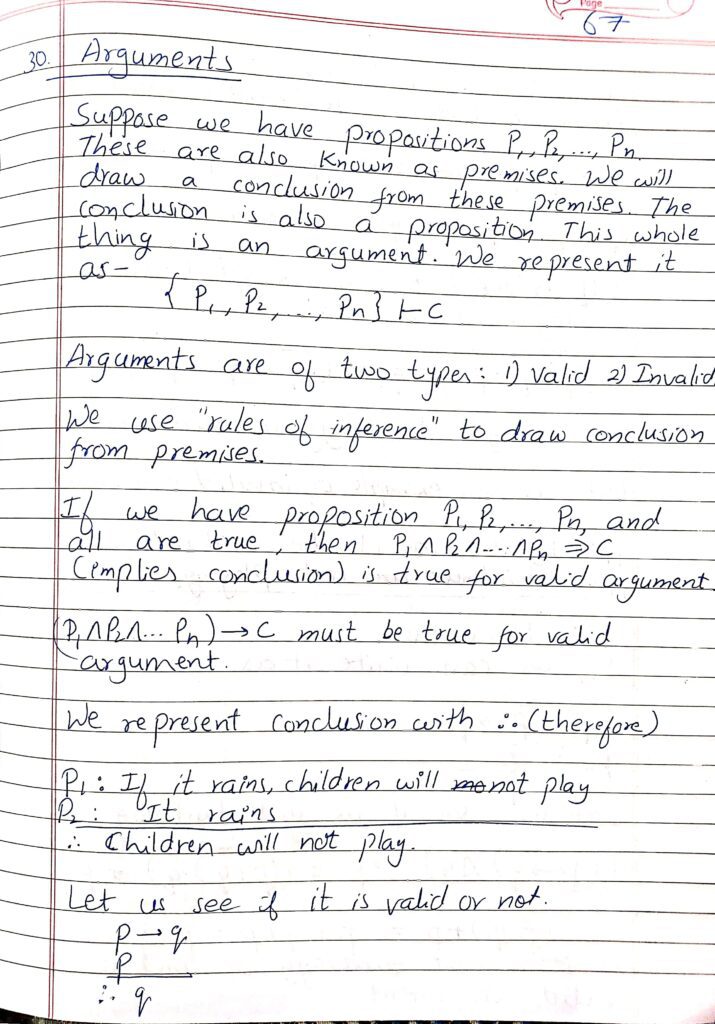 Page
67
30. Arguments
Suppose we have propositions P₁, P₂, ..., Pn.
These are also known as premises. We will
draw a conclusion from these premises. The
conclusion is also a proposition. This whole
thing is an argument. We represent it
as-
{ P₁, P₂, ..., Pn} ⊢ C
Arguments are of two types: 1) Valid 2) Invalid
We use "rules of inference" to draw conclusion
from premises.
If we have proposition P₁, P₂, ..., Pn, and
all are true, then P₁ ∧ P₂ ∧ ... ∧ Pn ⇒ C
(implies conclusion) is true for valid argument.
(P₁ ∧ P₂ ∧ ... Pn) → C must be true for valid
argument.
We represent conclusion with ∴ (therefore)
P₁ : If it rains, children will not play
P₂ : It rains
∴ Children will not play.
Let us see if it is valid or not.
p → q
p
∴ q